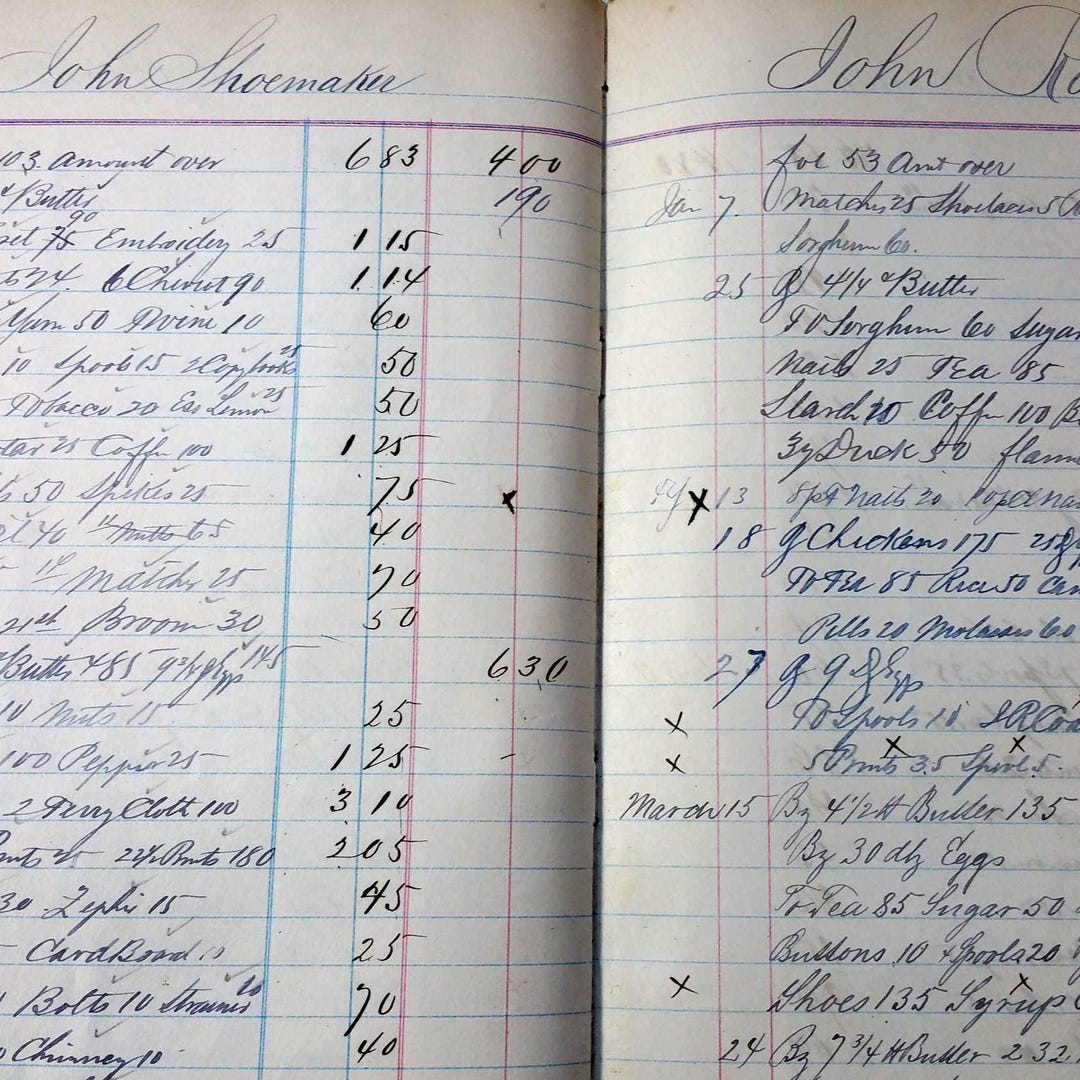 John Shoemaker
103. Amount over 6 83 4 00
& Butter 190
set 75 90 Emboidery 25 1 15
524 6 Chiviot 90 1 14
Yarn 50 Twine 10 60
10 Spools 15 2 Copybooks 25 50
Tobacco 20 Ess Lemon 25 50
tar 25 Coffee 100 1 25
50 Spikes 25 75 x
40 65 40
Matches 25 70
21st Broom 30 50
Butter 485 9 3/4 Eggs 145 6 30
10 Nuts 15 25
100 Pepper 25 1 25
2 Terry Cloth 100 3 10
Prints 180 2 05
30 Zephr 15 45
Card Board 10 25
Bolts 10 Strainer 20 70
Chimney 10 40
John
fol 53 Amt over
Jan 7. Matches 25 Shoelaces 5
Sorghum 60.
25 4 1/4 # Butter
To Sorghum 60 Sugar
Nails 25 Tea 85
Starch 10 Coffee 100
3y Duck 50 flann
x 13 8p# Nails 20 10p
18 Chickens 175 25
To Tea 85 Rice 50 Can
Pills 20 Molasses 60
27 9 Eggs
x To Spools 10
x 5 Prints 35 Spool 5.
March 15 By 4 1/2 # Butter 135
By 30 dz Eggs
To Tea 85 Sugar 50
Buttons 10 4 Spools 20
x Shoes 135 Syrup
24 By 7 3/4 # Butter 232